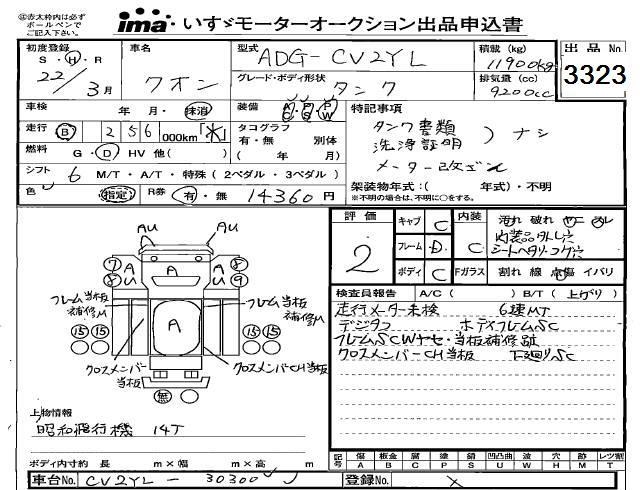 ◎赤太枠内は必ず
ボールペンで
ご記入下さい。
ima いすゞモーターオークション出品申込書
初度登録 S・H・R 22/3月
車名 クオン
型式 ADG-CV2YL
グレード・ボディ形状 タンク
積載(kg) 11900kg
排気量(cc) 9200cc
出品No. 3323
車検 年 月・抹消
装備 AC PS PW
特記事項
タンク書類
洗浄証明 ) ナシ
メーター改ざん
走行 B 256 000km
タコグラフ 有・無 別体 ( 年 月)
燃料 G・D・HV 他( )
シフト 6 M/T・A/T・特殊(2ペダル・3ペダル)
架装物年式:( 年式)・不明
※不明の場合は、不明に○をする。
色 (指定) R券 有・無 14360円
評価 2
キャブ C
フレーム D
ボディ C
内装 C
汚れ 破れ
内装品外し穴
シートヘタリ・コゲ穴
Fガラス 割れ 線 点傷 イバリ
検査員報告 A/C( ) B/T(上がり)
走行メーター未検 6速MT
デジタコ ボディフレムSC
フレームSCWヤセ・当板補修跡
クロスメンバーCH当板 下廻りSC
AU AU
⑦ A U A A U ⑧
⑧ ⑨
フレーム当板
補修M
フレーム当板
補修M
A
⑮ ⑮ ⑮ ⑮
クロスメンバー
当板
クロスメンバーCH当板
無
上物情報
昭和飛行機 14T
記号 傷 板金 腐 錆 凹 凹凸曲 波 穴 跡 レツ割
A B C S U W H M T
ボディ内寸約 長 m×幅 m×高 m
車台No. CV2YL - 30300
登録No.